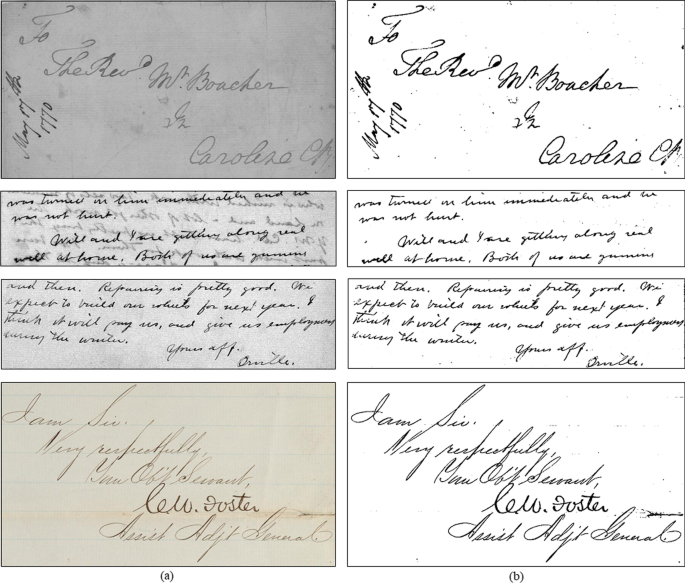 To
The Revd Mr. Boacher
in
Caroline Cty
May 17th
1770
To
The Revd Mr. Boacher
in
Caroline Cty
May 17th
1770
was turned on him immediately and he
was not hurt.
Will and I are getting along real
well at home. Both of us are
was turned on him immediately and he
was not hurt.
Will and I are getting along real
well at home. Both of us are
and then. Repairing is pretty good. We
expect to build our wheels for next year. I
think it will pay us, and give us employment
during the winter.
Yours aff.
Orville.
and then. Repairing is pretty good. We
expect to build our wheels for next year. I
think it will pay us, and give us employment
during the winter.
Yours aff.
Orville.
I am Sir.
Very respectfully,
Your Obt Servant,
C.W. Foster
Assist Adjt General
I am Sir.
Very respectfully,
Your Obt Servant,
C.W. Foster
Assist Adjt General
(a)
(b)